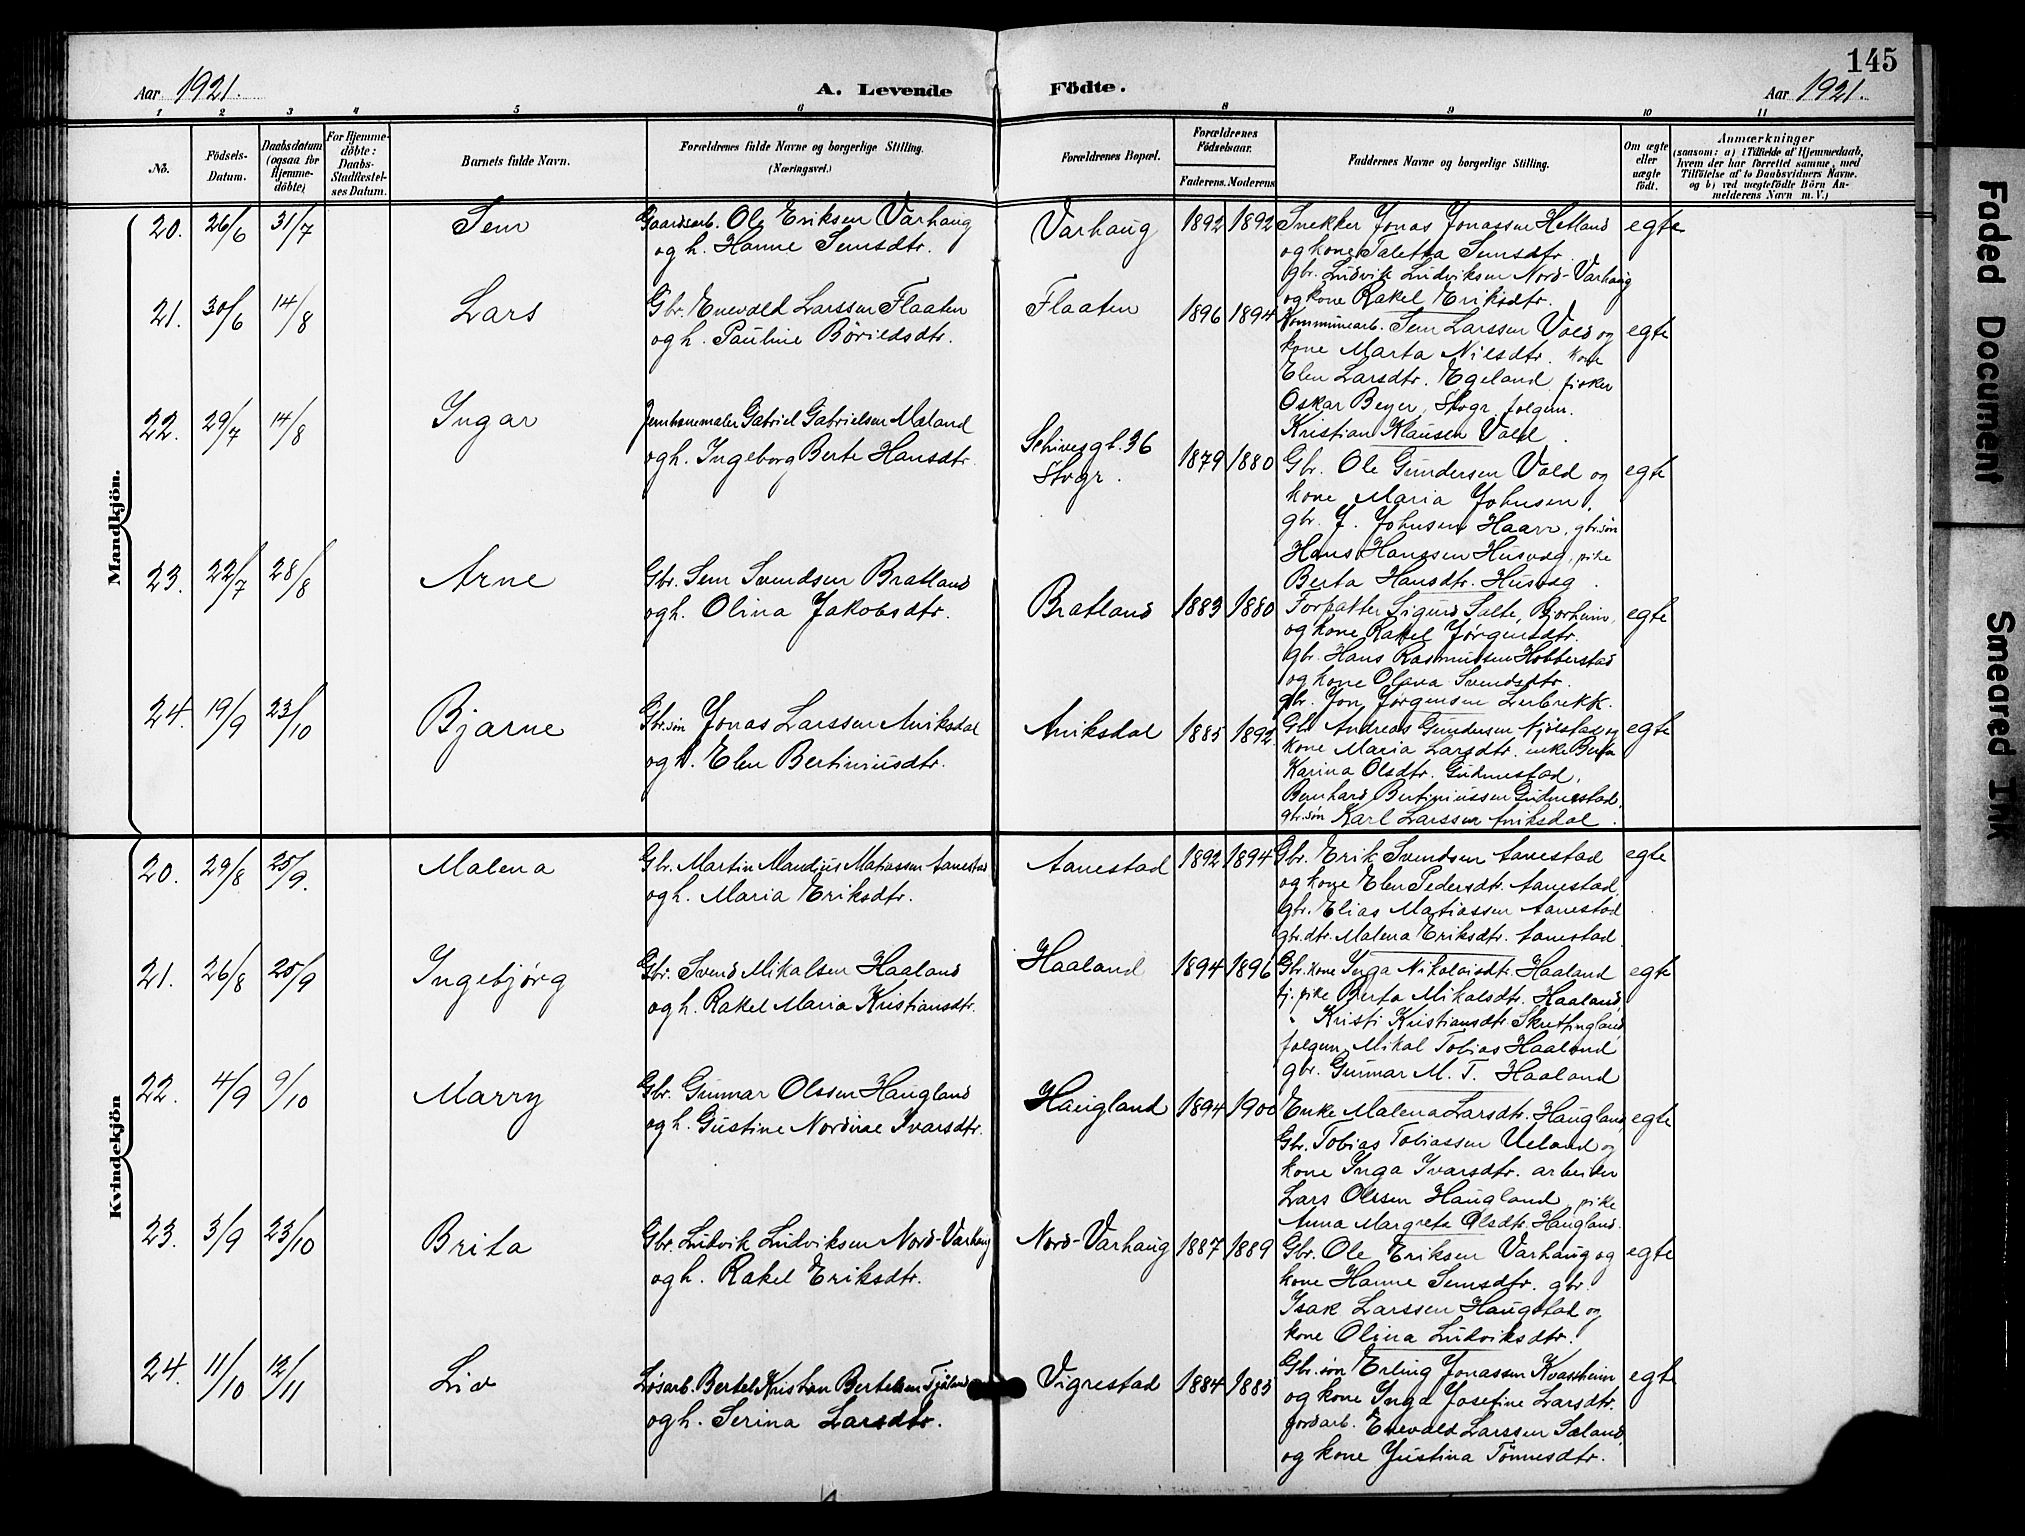 145
Aar 1921. A. Levende Födte. Aar 1921.
1 2 3 4 5 6 8 9 10 11
No. Födsels-Datum. Daabsdatum (ogsaa for Hjemme-döbte) For Hjemme-döbte: Daabs-Stadfæstel-ses Datum. Barnets fulde Navn. Forældrenes fulde Navne og borgerlige Stilling. (Næringsvei.) Forældrenes Bopæl. Forældrenes Födselsaar. Faderens. Moderens Faddernes Navne og borgerlige Stilling. Om ægte eller uægte födt. Anmærkninger (saasom: a) i Tilfælde af Hjemmedaab, hvem der har forrettet samme, med Tilföielse af to Daabsvidners Navne. og b) ved uægtefödte Börn An-melderens Navn m. V.)
Mandkjön.
20. 26/6 31/7 Sem Gaardsarb. Ole Eriksen Varhaug Varhaug 1892 1892 Snekker Jonas Jonassen Hetland egte
og h. Hanne Semsdtr. og kone Taletta Semsdtr.
gbr. Ludvik Ludviksen Nord-Varhaug
og kone Rakel Eriksdtr.
21. 30/6 14/8 Lars Gbr. Enevald Larssen Flaaten Flaaten 1896 1894 Kommunearb. Sem Larssen Vold og egte
og h. Pauline Börildsdtr. kone Marta Nilsdtr. kone
Elen Larsdtr. Egeland, fisker
Oskar Beyer, Stvgr. folgem.
Kristian Klausen Vold.
22. 29/7 14/8 Ingar Jernbanemaler Gabriel Gabrielsen Mæland Schivesgt. 36 1879 1880 Gbr. Ole Gundersen Vold og egte
og h. Ingeborg Berte Hansdtr. Stvgr. kone Maria Johnsen,
gbr. J. Johnsen Haarr, gbr.søn
Hans Hanssen Husvæg, pike
Berta Hansdtr. Husvæg.
23. 22/7 28/8 Arne Gbr. Sem Svendsen Bratland Bratland 1883 1880 Forfatter Sigurd Salte, Bjorheim, egte
og h. Olina Jakobsdtr. og kone Rakel Jørgensdtr.
gbr. Hans Rasmussen Hobberstad
og kone Olava Svendsdtr.
gbr. Jon Jørgensen Lerbrekk.
24. 19/9 23/10 Bjarne Gbr.søn Jonas Larssen Aniksdal Aniksdal 1885 1892 Gbr. Andreas Gundersen Njølstad og egte
og h. Elen Bertiniusdtr. kone Maria Larsdtr. enke Berta
Karina Olsdtr. Gudmestad,
Bernhard Bertiniussen Gudmestad,
gbr.søn Karl Larssen Aniksdal.
Kvindekjön
20. 29/8 25/9. Malena Gbr. Martin Mandius Matiassen Aanestad Aanestad 1892 1894 Gbr. Erik Svendsen Aanestad egte
og h. Maria Eriksdtr. og kone Elen Pedersdtr. Aanestad,
gbr. Elias Matiassen Aanestad
gbr.dtr. Malena Eriksdtr. Aanestad
21. 26/8 25/9 Ingebjørg Gbr. Svend Mikalsen Haaland Haaland 1894 1896 Gbr.kone Inga Nikolaisdtr. Haaland egte
og h. Rakel Maria Kristiansdtr. tj.pike Berta Mikalsdtr. Haaland,
" Kristi Kristiansdtr. Skretingland,
folgem. Mikal Tobias Haaland
gbr. Gunnar M. T. Haaland
22. 4/9 9/10 Marry Gbr. Gunnar Olssen Haugland Haugland 1894 1900 Enke Malena Larsdtr. Haugland, egte
og h. Gustine Nordine Ivarsdtr. Gbr. Tobias Tobiassen Ueland og
kone Inga Ivarsdtr. arbeider
Lars Olssen Haugland, pike
Anna Margreta Olsdtr. Haugland.
23. 3/9 23/10 Brita Gbr. Ludvik Ludviksen Nord-Varhaug Nord-Varhaug 1887 1889 Gbr. Ole Eriksen Varhaug og egte
og h. Rakel Eriksdtr. kone Hanne Semsdtr. gbr.
Isak Larssen Haugstad og
kone Olina Ludviksdtr.
24. 11/10 12/11 Liv Løsarb. Bertel Kristian Bertelsen Tjåland Vigrestad 1884 1885 Gbr.søn Erling Jonassen Kvassheim egte
og h. Serina Larsdtr. og kone Inga Josefine Larsdtr.
jordarb. Enevald Larssen Sæland,
og kone Justina Tønnesdtr.
Faded Document
Smeared Ink